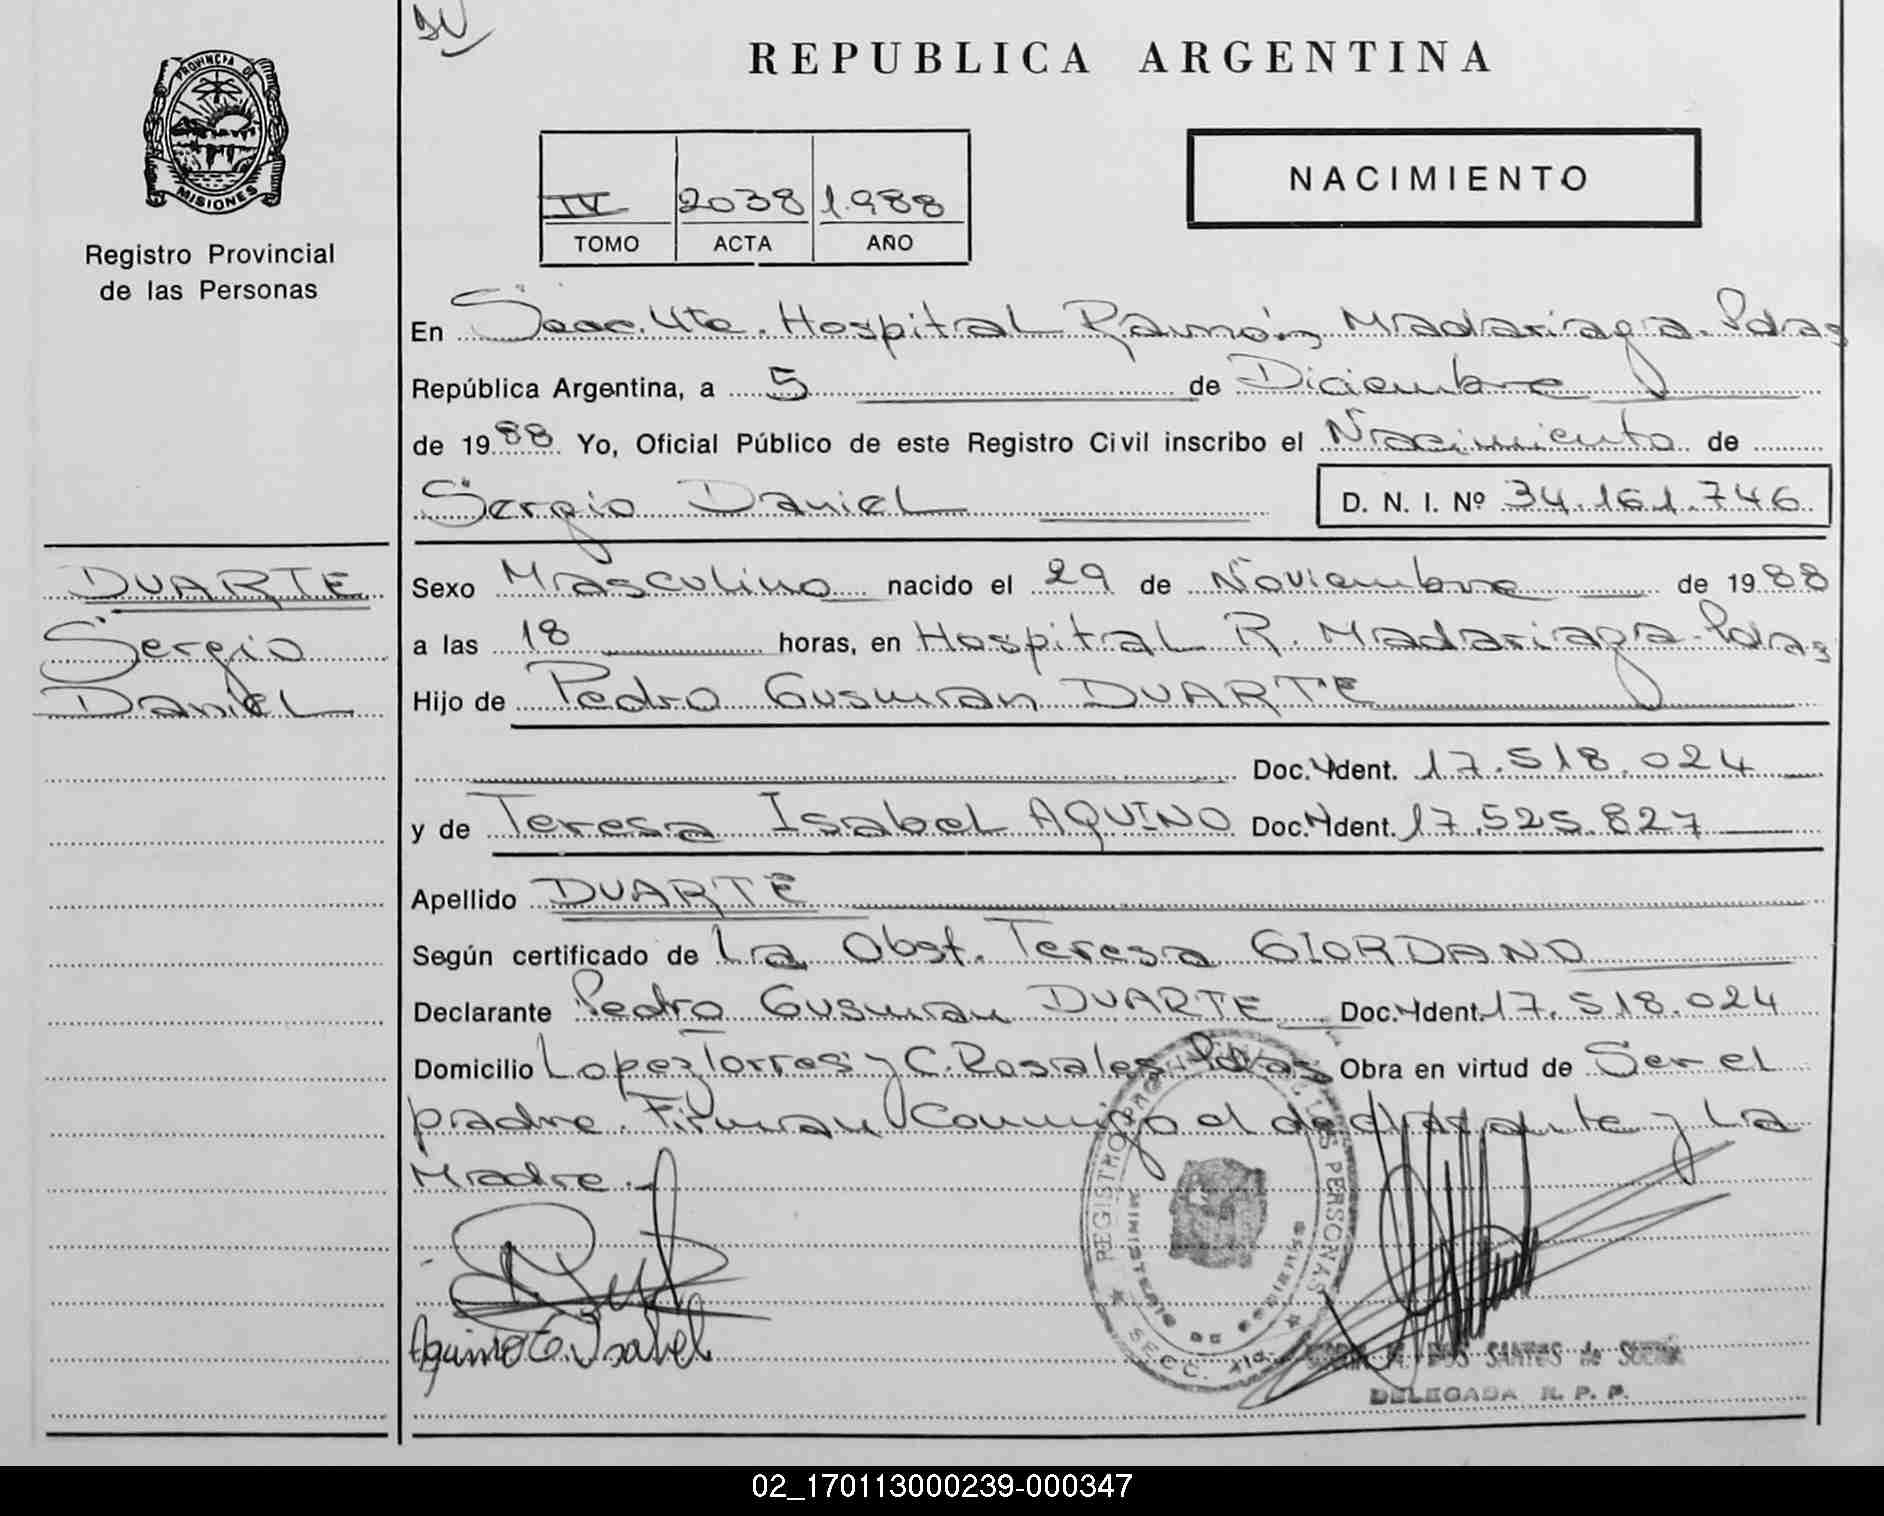 REPUBLICA ARGENTINA
PROVINCIA DE
MISIONES
Registro Provincial
de las Personas
IV 2038 1.988
TOMO ACTA AÑO
NACIMIENTO
En Secc. 4ta. Hospital Ramón Madariaga. Pdas
República Argentina, a 5 de Diciembre
de 1988 Yo, Oficial Público de este Registro Civil inscribo el Nacimiento de
Sergio Daniel D. N. I. Nº 34.161.746
DUARTE
Sergio
Daniel
Sexo Masculino nacido el 29 de Noviembre de 1988
a las 18 horas, en Hospital R. Madariaga. Pdas
Hijo de Pedro Gusman DUARTE
Doc. Ydent. 17.518.024
y de Teresa Isabel AQUINO Doc. Ydent. 17.525.827
Apellido DUARTE
Según certificado de La Obst. Teresa GIORDANO
Declarante Pedro Gusman DUARTE Doc. Ydent. 17.518.024
Domicilio Lopez Torres y C. Rosales Pdas Obra en virtud de Ser el
padre. Firman Conmigo el declarante y La
Madre.-
Aquino T. Isabel
REGISTRO PROVINCIAL DE LAS PERSONAS
MINISTERIO DE GOBIERNO
SECC. 4ta.
DOS SANTOS de
DELEGADA R. P. P.
02_170113000239-000347